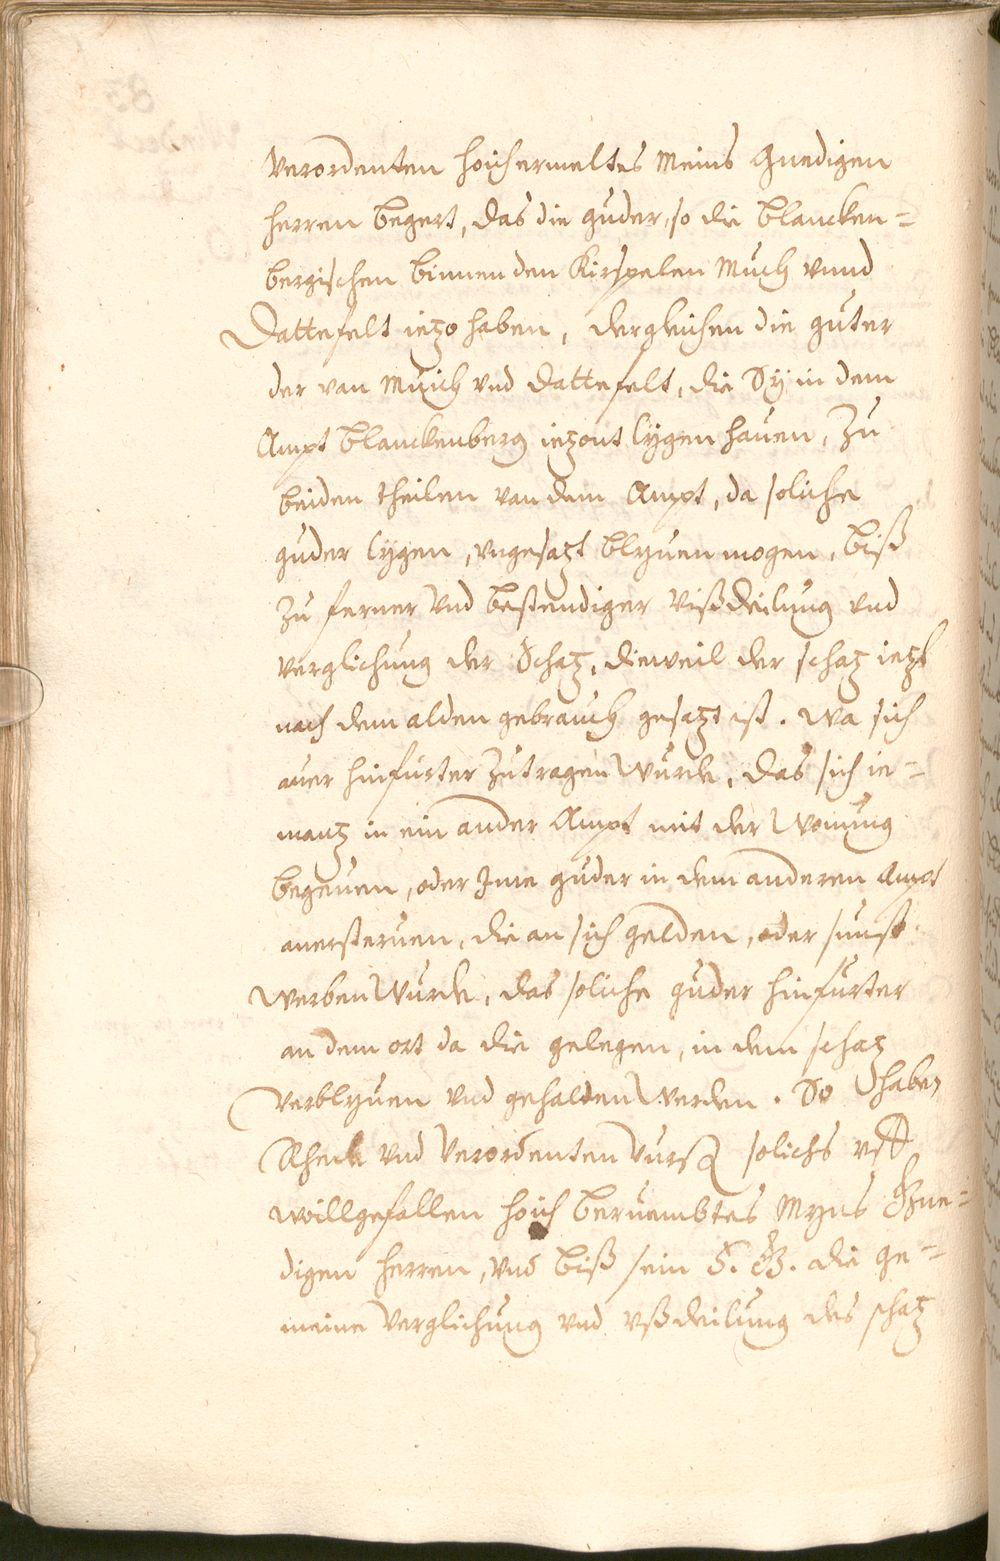 Verordenten hoichermeltes Meins Gnedigen
herren begert, das die guder, so die Blancken=
bergischen binnen den Kirspelen Much vnnd
Dattefelt ietzo haben, dergleichen die guter
der van Much vnd Dattefelt, die Sy in dem
Ampt Blanckenberg ietzont lygen hauen, Zu
beiden theilen van dem Ampt, da soliche
guder lygen, vngesatzt blyuen mogen, biß
Zu ferner vnd bestendiger vißdeilung vnd
verglichung der Schatz, dieweil der schatz ietzt
nach dem alden gebrauch gesatzt ist. Wa sich
auer hinfurter Zutragen wurde, das sich ie=
mantz in ein ander Ampt mit der Wonung
begeuen, oder Jme guder in dem anderen Ampt
anersteruen, die an sich gelden, oder sunst
werben wurde, das soliche guder hinfurter
an dem ort da die gelegen, in dem schatz
verblyuen vnd gehalden werden. So haben
Rhede vnd Verordenten vurß solichs vff
willgefallen hoich beruembtes Myns Gne=
digen herren, vnd biß sein F. G. die ge=
meine Verglichung vnd vßdeilung des schatz